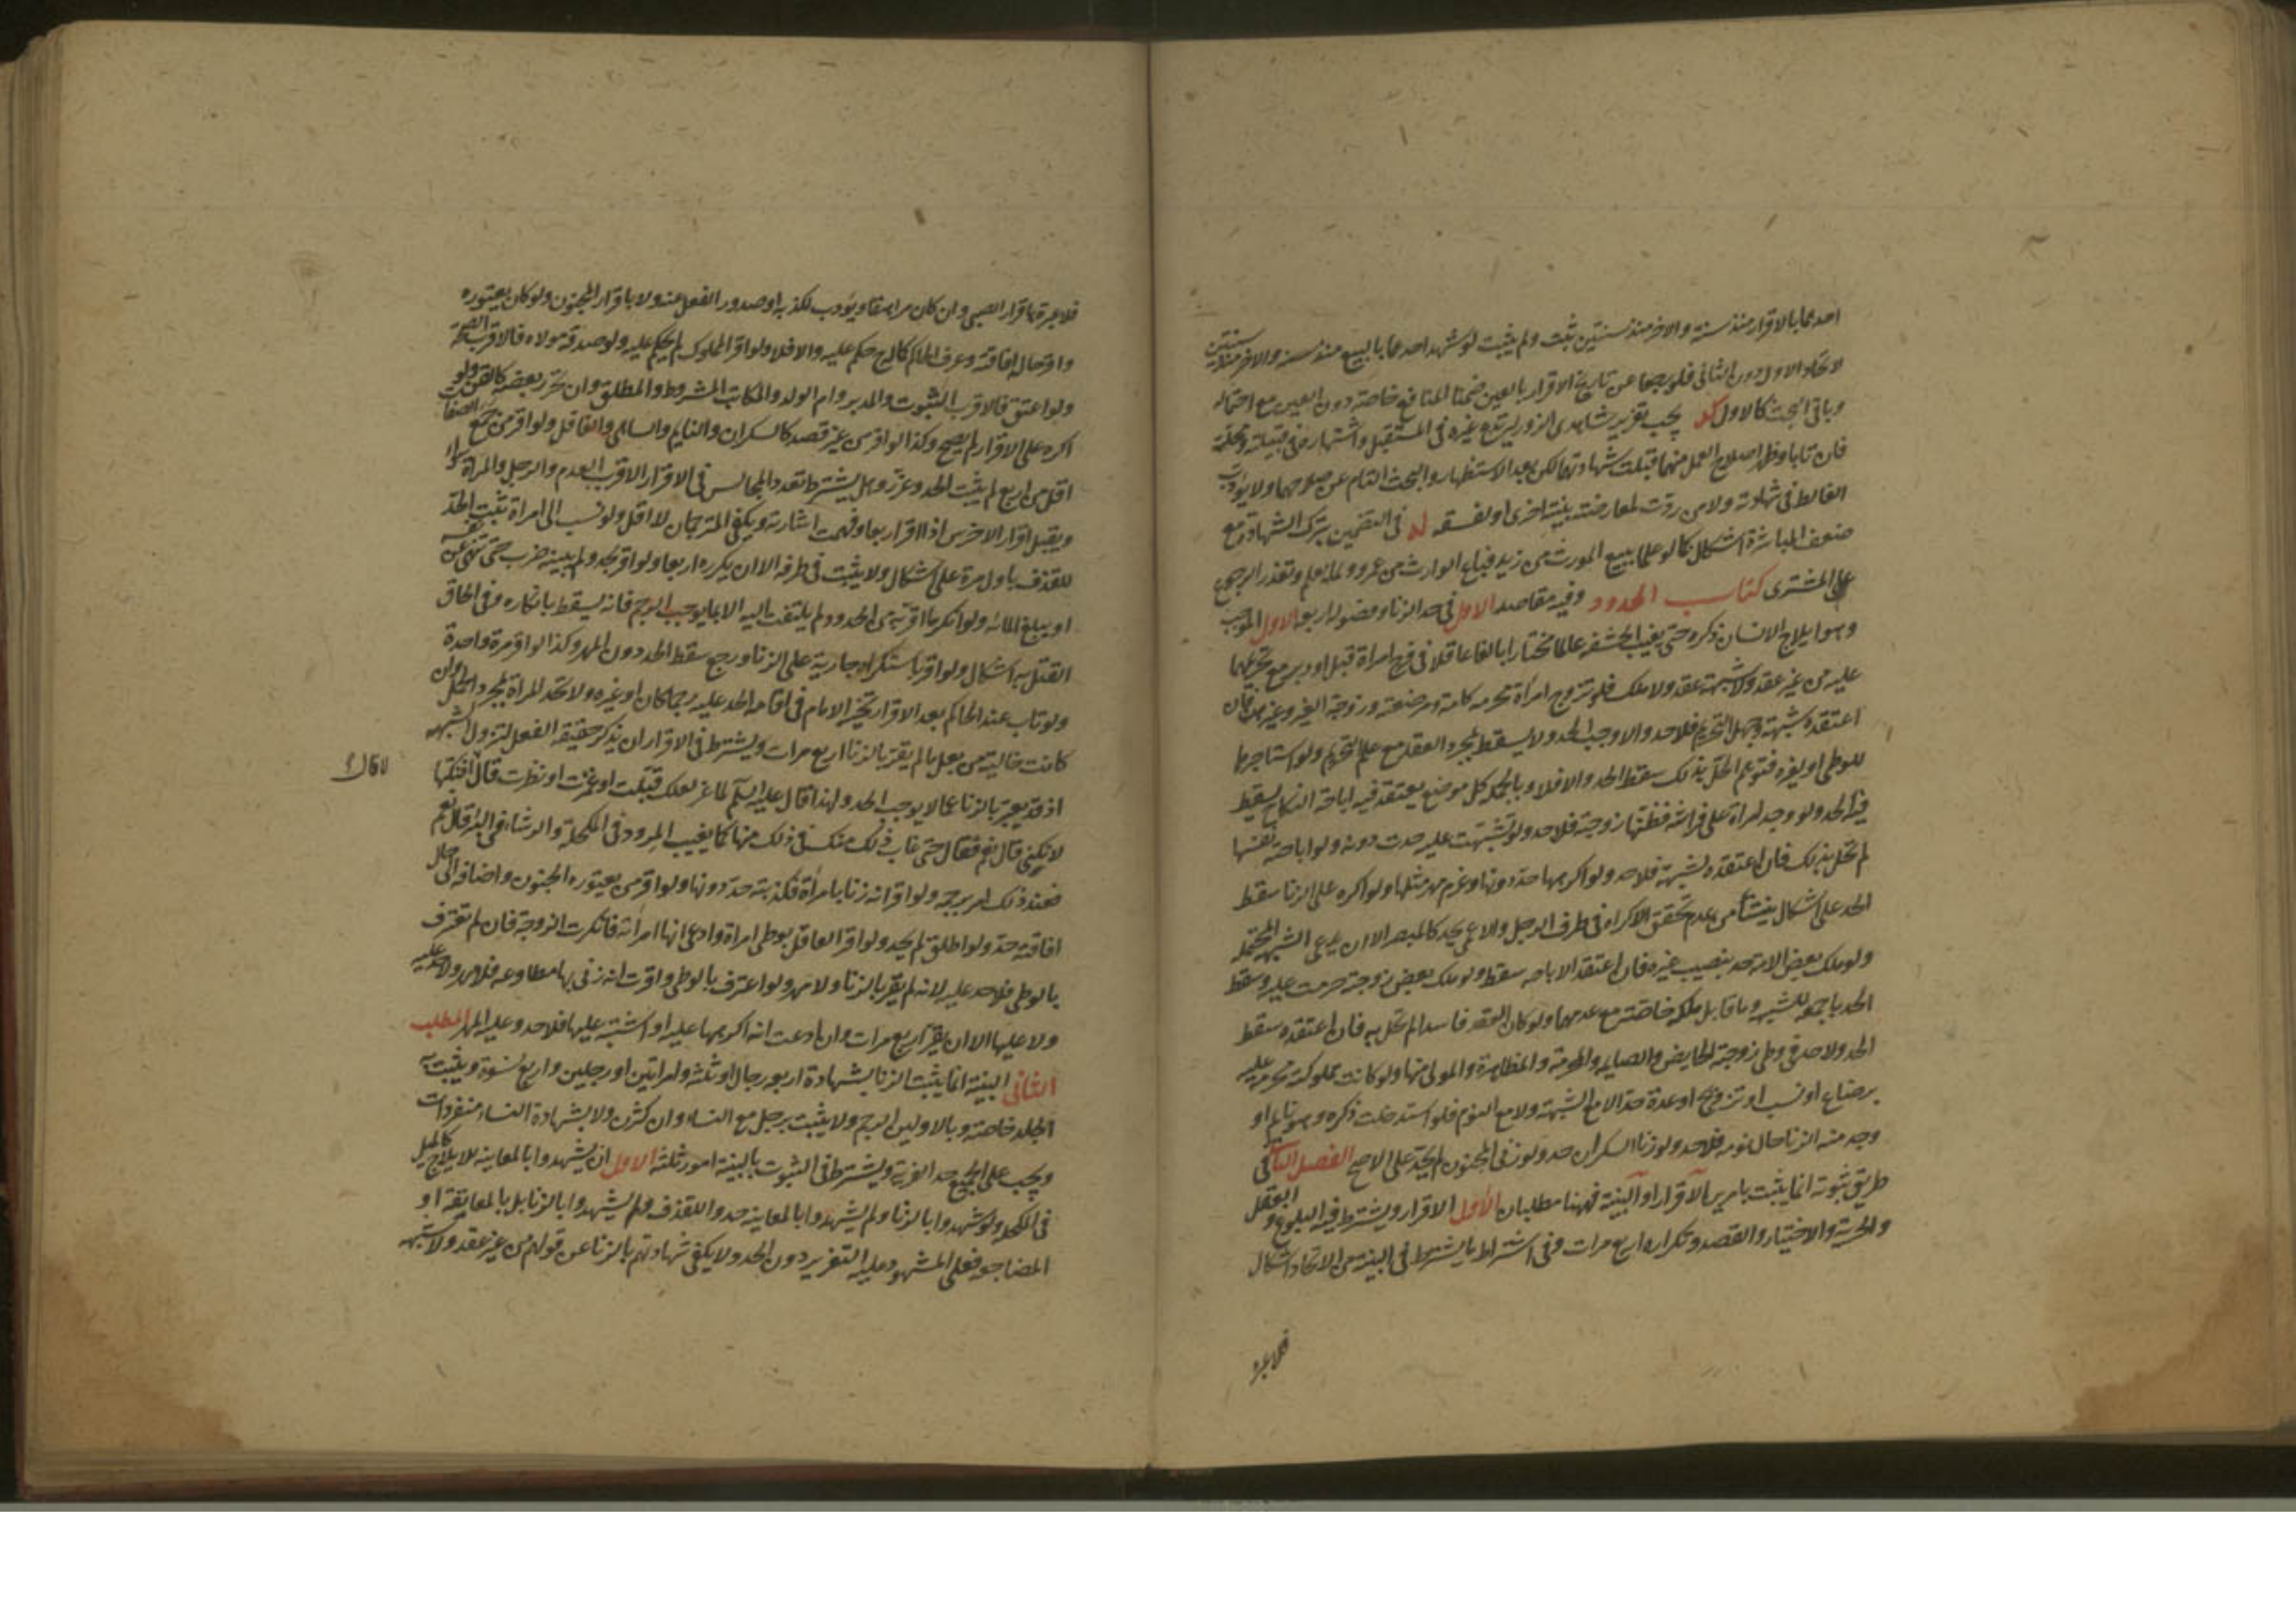 احدهما بالاقرار منذ سنة والاخر منذ سنتين ثبت ولم يثبت لو شهد احدهما بالبيع منذ سنة والاخر منذ سنتين
لاتحاد الاول دون الثانى فلو رجعا عن تاريخ الاقرار بالعين ضمنا المنافع خاصة دون العين مع احتماله
وباقى البحث كالاول كد يجب تعزير شاهدى الزور ليرتدع غيره فى المستقبل واشتهارهم فى قبيلته ومحلته
فان تابا وظهر اصلاح العمل منهما قبلت شهادتهما لكن بعد الاستظهار والبحث التام عن صلاحهما ولا يؤدب
الغالط فى شهادته ولا من ردت لمعارضته بينة اخرى او لفسقه له فى التضمين بترك الشهادة مع
ضعف المباشرة اشكال كما لو علما ببيع المورث من زيد فباع الوارث من عمرو ولما يعلم وتعذر الرجوع
على المشترى كتاب الحدود وفيه مقاصد الاول فى حد الزنا وفصوله اربعة الاول الموجب
وهو ايلاج الانسان ذكره حتى يغيب الحشفة عالما مختارا بالغا عاقلا فى فرج امراة قبل او دبر مع تحريمها
عليه من غير عقد ولا شبهة عقد ولا ملك فلو تزوج امرأة محرمه كامه ومرضعته وزوجة الغير وغيرهن فان
اعتقده شبهة وجهل التحريم فلا حد والا وجب الحد ولا يسقط بمجرد العقد مع علم التحريم ولو استاجرها
للوطى او لغيره فتوهم الحل بذلك سقط الحد والا فلا وبالجملة كل موضع يعتقد فيه اباحة النكاح يسقط
فيه الحد ولو وجد امراة على فراشه فظنها زوجته فلا حد ولو تشبهت عليه حدت دونه ولو اباحته نفسها
لم تحل بذلك فان اعتقده لشبهة فلا حد ولو اكرهها حد دونها وغرم مهر مثلها ولو اكره على الزنا سقط
الحد على اشكال ينشأ من عدم تحقق الاكراه فى طرف الرجل والاعمى يحد كالمبصر الا ان يدعى الشبهة المحتملة
ولو ملك بعض الامة حد بنصيب غيره فان اعتقد الاباحه سقط ولو ملك بعض زوجته حرمت عليه وسقط
الحد باجمعه للشبهه وما قابل ملكه خاصة مع عدمها ولو كان العقد فاسدا لم تحل به فان اعتقده سقط
الحد ولا حد فى وطى زوجته الحايض والصايمة والمحرمة والمظاهرة والمولى منها ولو كانت مملوكته تحرم عليه
برضاع او نسب او تزويج او عدة حد الا مع الشبهة ولا مع النوم فلو استدخلت ذكره وهو نايم او
وجد منه الزنا حال نومه فلا حد ولو زنا السكران حد ولو زنى المجنون لم يحد على الاصح الفصل الثانى فى
طريق ثبوته انما يثبت بامرين الاقرار او البينة فههنا مطلبان الاول الاقرار ويشترط فيه البلوغ والعقل
والحرية والاختيار والقصد وتكراره اربع مرات وفى اشتراط ما يشترط فى البينة من الاتحاد اشكال
فلا عبرة
فلا عبرة باقرار الصبى وان كان مراهقا ويؤدب لكذبه او صدور الفعل عنه ولا باقرار المجنون ولو كان يعتوره
واقر حال افاقته وعرف الحاكم كماله ح حكم عليه والا فلا ولو اقر المملوك لم يحكم عليه ولو صدقه مولاه فالاقرب الصحة
ولو اعتق فالاقرب الثبوت والمدبر وام الولد والمكاتب المشروط والمطلق وان تحرر بعضه كالقن ولو
اكره على الاقرار لم يصح وكذا لو اقر من غير قصد كالسكران والنايم والساهى والغافل ولو اقر من جمع الصفات
اقل من اربع لم يثبت الحد وعزر وهل يشترط تعدد المجالس فى الاقرار الاقرب العدم والرجل والمرأة سواء
ويقبل اقرار الاخرس اذا اقر اربعا وفهمت اشارته ويكفى المترجمان لا اقل ولو نسب الى امراة ثبت الحد
للقذف باول مرة على اشكال ولا يثبت فى طرفه الا ان يكرره اربعا ولو اقر بحد ولم يبينه ضرب حتى ينهى عن نفسه
او يبلغ المائه ولو انكر ما اقر به من الحدود لم يلتفت اليه الا بما يوجب الرجم فانه يسقط بانكاره وفى الحاق
القتل به اشكال ولو اقر باستكراه جارية على الزنا ورجع سقط الحد دون المهر وكذا لو اقر مرة واحدة
ولو تاب عند الحاكم بعد الاقرار تخير الامام فى اقامه الحد عليه رجما كان او غيره ولا تحد المراة بمجرد الحمل وان
كانت خالية من بعل ما لم يقر بالزنا اربع مرات ويشترط فى الاقرار ان يذكر حقيقة الفعل لتزول الشبهه
اذ قد يعبر بالزنا عما لا يوجب الحد ولهذا قال عليه السلم لماعز لعلك قبلت او غمزت او نظرت قال افنكتها
لا تكنى قال نعم فقال حتى غاب ذلك منك فى ذلك منها كما يغيب المرود فى المكحلة والرشاء فى البئر قال نعم
فعند ذلك امر برجمه ولو اقر انه زنا بامرأة فكذبته حد دونها ولو اقر من يعتوره الجنون واضافه الى حال
افاقته حد ولو اطلق لم يحد ولو اقر العاقل بوطى امراة وادعى انها امرأته فانكرت الزوجية فان لم تعترف
بالوطى فلا حد عليه لانه لم يقر بالزنا ولا مهر ولو اعترف بالوطى واقرت انه زنى بها مطاوعه فلا مهر ولا حد عليه
ولا عليها الا ان يقر اربع مرات وان ادعت انه اكرهها عليه او اشتبه عليها فلا حد وعليه المهر المطلب
الثانى البينة انما يثبت الزنا بشهادة اربعه رجال او ثلثة وامراتين او رجلين واربع نسوة ويثبت به
الجلد خاصة وبالاولين الرجم ولا يثبت برجل مع النساء وان كثرن ولا بشهادة النساء منفردات
ويجب على الجميع حد الفرية ويشترط فى الثبوت بالبينة امور ثلثة الاول ان يشهدوا بالمعاينه للايلاج كالميل
فى المكحله ولو شهدوا بالزنا ولم يشهدوا بالمعاينه حدوا للقذف ولم يشهدوا بالزنا بل بالمعانقة او
المضاجعه فعلى المشهود عليه التعزير دون الحد ولا يكفى شهادتهم بالزنا عن قولهم من غير عقد ولا شبهه